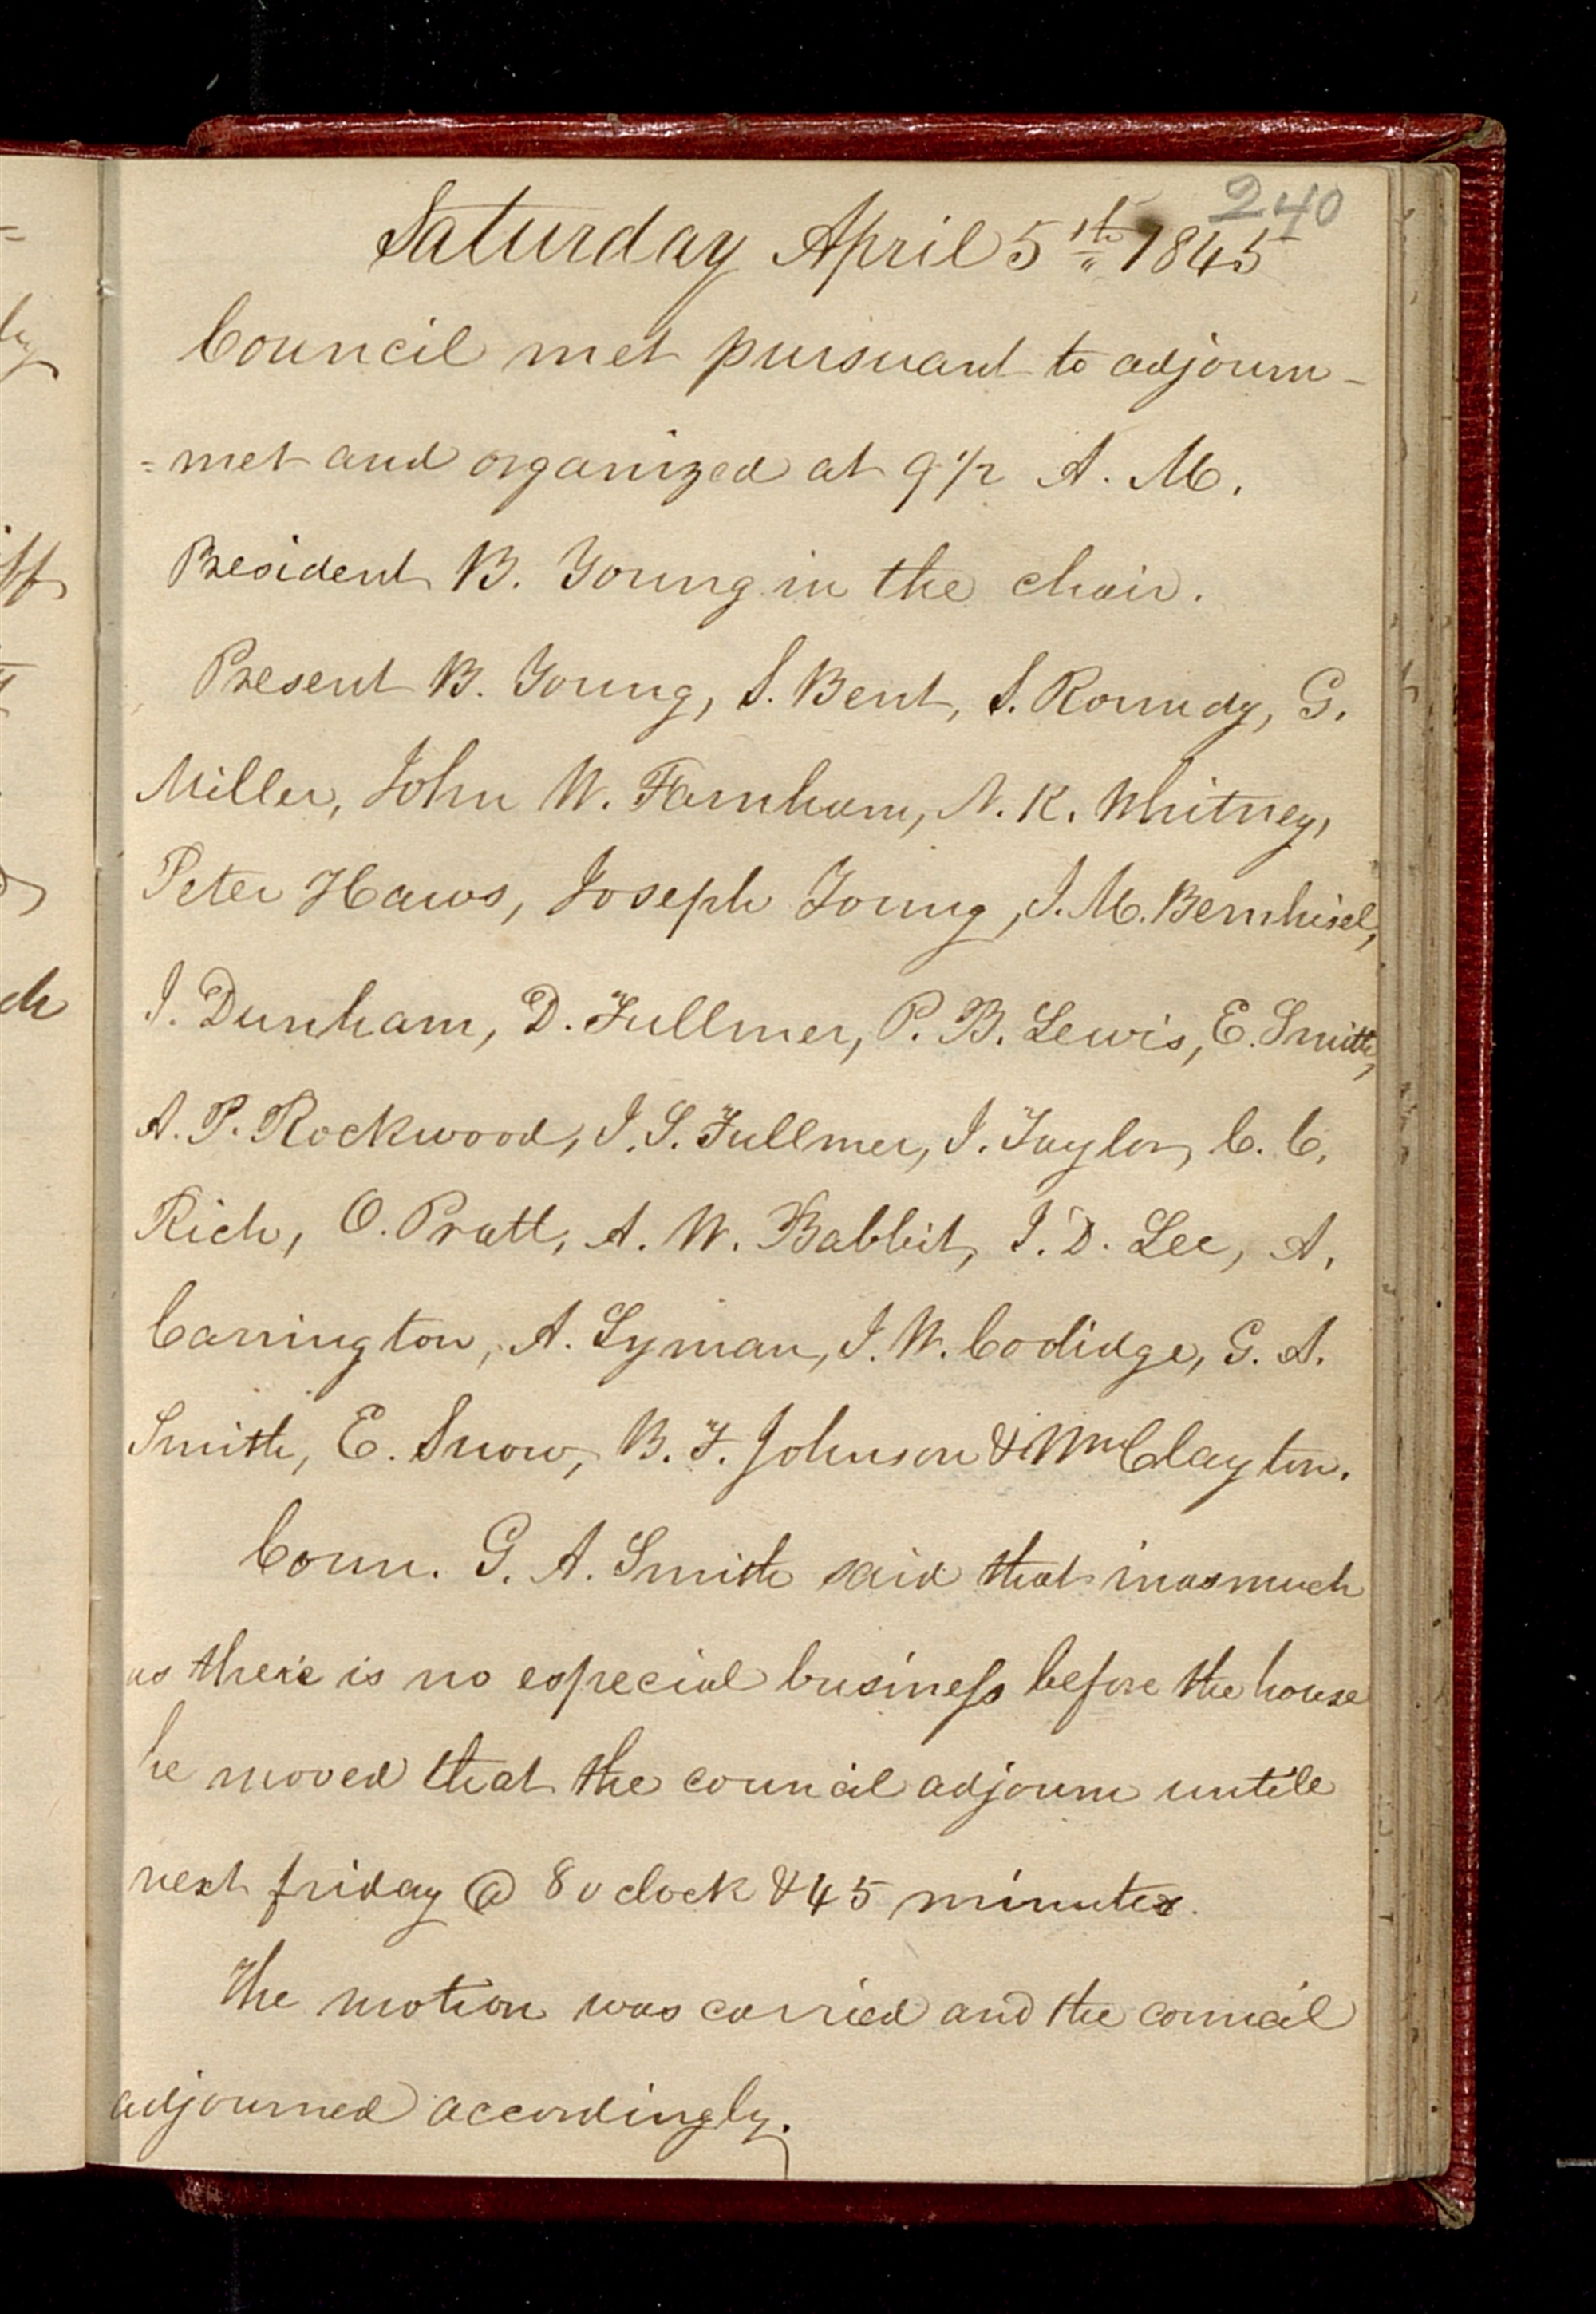 240
Saturday April 5th 1845
Council met pursuant to adjourn-
=met and organized at 9 1/2 A. M.
President B. Young in the chair.
Present B. Young, S. Bent, S. Roundy, G.
Miller, John W. Farnham, N. K. Whitney,
Peter Haws, Joseph Young, J. M. Bernhisel,
J. Dunham, D. Fullmer, P. B. Lewis, E. Smith,
A. P. Rockwood, J. S. Fullmer, J. Taylor, C. C.
Rich, O. Pratt, A. W. Babbit, J. D. Lee, A.
Carrington, A. Lyman, J. W. Coolidge, G. A.
Smith, E. Snow, B. F. Johnson & Wm Clayton.
Coun. G. A. Smith said that inasmuch
as there is no especial business before the house
he moved that the council adjourn untill
next friday @ 8 o clock & 45 minutes.
The motion was carried and the council
adjourned accordingly.